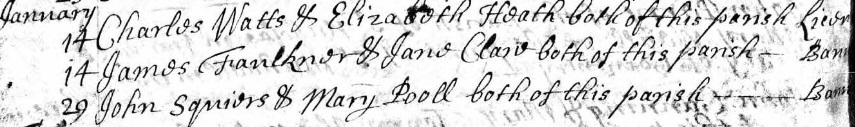 January
14 Charles Watts & Elizabeth Heath both of this parish Licen
14 James Faulkner & Jane Clare both of this parish — Bann
29 John Squiers & Mary Pooll both of this parish — — — Bann